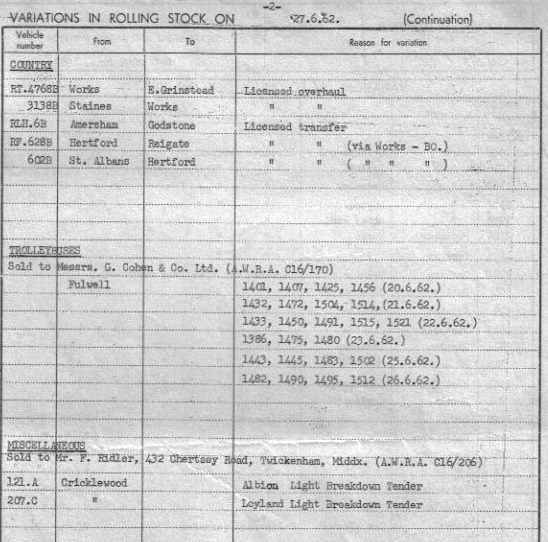 -2-
VARIATIONS IN ROLLING STOCK ON 27.6.62. (Continuation)
Vehicle number From To Reason for variation
COUNTRY
RT.4768B Works E.Grinstead Licensed overhaul
3138B Staines Works " "
RLH.6B Amersham Godstone Licensed transfer
RF.628B Hertford Reigate " " (via Works - BC.)
602B St. Albans Hertford " " ( " " " )
TROLLEYBUSES
Sold to Messrs. G. Cohen & Co. Ltd. (A.W.R.A. C16/170)
Fulwell 1401, 1407, 1425, 1456 (20.6.62.)
1432, 1472, 1504, 1514, (21.6.62.)
1433, 1450, 1491, 1515, 1521 (22.6.62.)
1386, 1475, 1480 (23.6.62.)
1443, 1445, 1483, 1502 (25.6.62.)
1482, 1490, 1495, 1512 (26.6.62.)
MISCELLANEOUS
Sold to Mr. F. Ridler, 432 Chertsey Road, Twickenham, Middx. (A.W.R.A. C16/206)
121.A Cricklewood Albion Light Breakdown Tender
207.C " Leyland Light Breakdown Tender